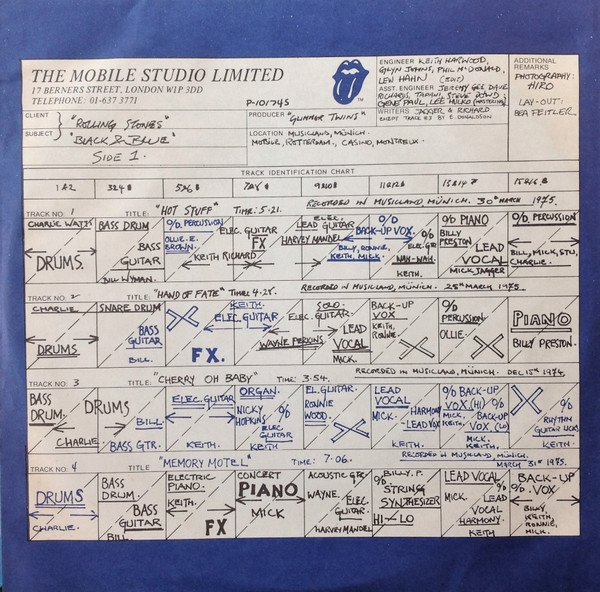 THE MOBILE STUDIO LIMITED
17 BERNERS STREET, LONDON W1P 3DD
TELEPHONE: 01-637 3771
P-101745
TM
ENGINEER KEITH HARWOOD,
GLYN JOHNS, PHIL McDONALD,
LEW HAHN (EDIT)
ASST. ENGINEER JEREMY GEE DAVE
RICHARDS, TAPANI, STEVE DOWD,
GENE PAUL, LEE HULKO (MASTERING)
WRITERS JAGGER & RICHARD
EXCEPT TRACK #3 BY E. DONALDSON
ADDITIONAL
REMARKS
PHOTOGRAPHY:
HIRO
LAY-OUT:
BEA FEITLER.
CLIENT "ROLLING STONES"
SUBJECT "BLACK & BLUE"
SIDE 1.
PRODUCER "GLIMMER TWINS"
LOCATION MUSICLAND, MÜNICH.
MOBILE, ROTTERDAM, CASINO, MONTREUX.
TRACK IDENTIFICATION CHART
1 & 2 3 & 4 5 & 6 7 & 8 9 & 10 11 & 12 13 & 14 15 & 16
RECORDED IN MUSICLAND, MÜNICH. 30th MARCH 1975.
TRACK NO: 1 TITLE: "HOT STUFF" TIME: 5.21.
CHARLIE WATTS
DRUMS.
BASS DRUM
BASS
GUITAR
BILL WYMAN.
% PERCUSSION
OLLIE. E.
BROWN.
KEITH RICHARD
ELEC. GUITAR
FX
ELEC.
LEAD GUITAR
HARVEY MANDEL
O/D
BACK-UP VOX.
BILL, RONNIE,
KEITH, MICK.
% ELEC. GTR
WAH-WAH.
KEITH.
% PIANO
BILLY
PRESTON
LEAD
VOCAL
MICK JAGGER
% PERCUSSION
BILL, MICK, STU,
CHARLIE.
TRACK NO: 2 TITLE: "HAND OF FATE" TIME: 4.28.
RECORDED IN MUSICLAND, MÜNICH. 25th MARCH 1975
CHARLIE
DRUMS
SNARE DRUM
BASS
GUITAR
BILL.
FX.
KEITH.
ELEC. GUITAR
SOLO.
ELEC. GUITAR.
WAYNE PERKINS
LEAD
VOCAL
MICK.
BACK-UP
VOX
KEITH,
RONNIE.
%
PERCUSSION.
OLLIE.
PIANO
BILLY PRESTON.
TRACK NO: 3 TITLE: "CHERRY OH BABY" TIME: 3.54.
RECORDED IN MUSICLAND, MÜNICH. DEC 15th 1974.
BASS
DRUM.
DRUMS
CHARLIE
BILL.
BASS GTR.
ELEC. GUITAR
KEITH.
ORGAN.
NICKY
HOPKINS
%
ELEC
GUITAR
KEITH
EL. GUITAR.
RONNIE
WOOD.
LEAD
VOCAL
MICK.
HARMONY
LEAD VOX
KEITH
% BACK-UP
VOX. (HI) %
MICK. BACK-UP
KEITH. VOX. (LO)
MICK.
KEITH.
%
RHYTHM
GUITAR LICKS.
KEITH.
TRACK NO: 4 TITLE "MEMORY MOTEL" TIME: 7.06.
RECORDED IN MUSICLAND, MÜNICH.
MARCH 31st 1975.
DRUMS
CHARLIE.
BASS
DRUM.
BASS
GUITAR
BILL.
ELECTRIC
PIANO.
KEITH.
FX
CONCERT
PIANO
MICK
ACOUSTIC GTR
WAYNE.
ELEC.
GUITAR.
HARVEY MANDEL
BILLY. P.
%
STRING
SYNTHESIZER
HI-LO
LEAD VOCAL
MICK.
%
LEAD
VOCAL
HARMONY.
KEITH
BACK-UP
% VOX
BILLY,
KEITH,
RONNIE,
MICK.